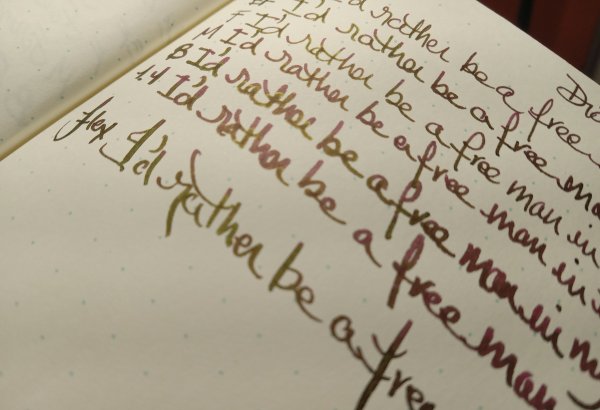 I'd rather be a free
EF I'd rather be a free ma
F I'd rather be a free man in
M I'd rather be a free man in
B I'd rather be a free man in m
1.4 I'd rather be a free man
flex I'd rather be a free